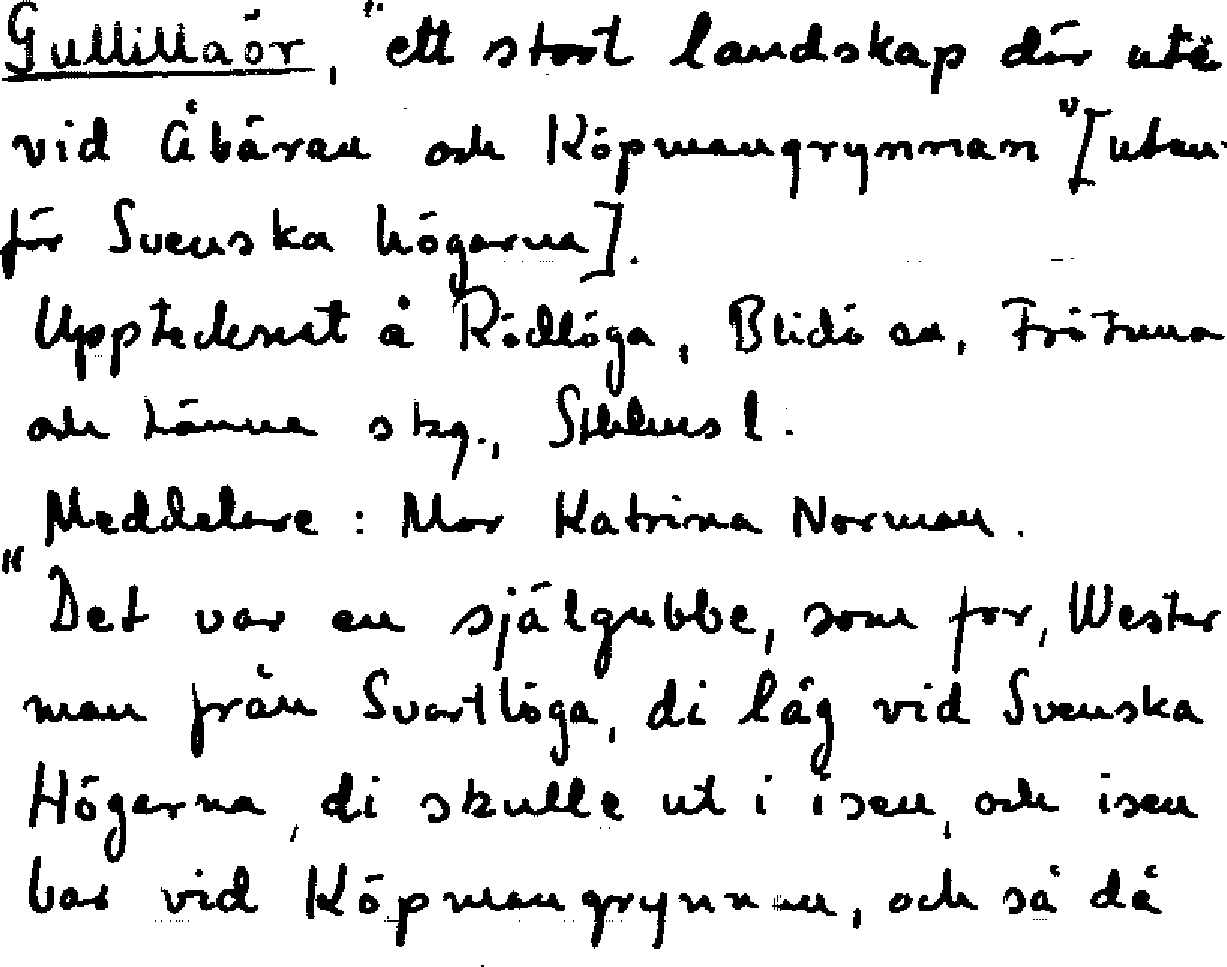 Gullillaör, "ett stort landskap där ute
vid Åbäran och Köpmangrynnan" [utan-
för Svenska högarna].
Upptecknat å Rödlöga, Blidö sn, Frötuna
och Länna skg., Sthlms l.
Meddelare : Mor Katrina Norman.
"Det var en själgubbe, som for, Wester
man från Svartlöga, di låg vid Svenska
Högarna, di skulle ut i isen, och isen
bar vid Köpmangrynnan, och så då